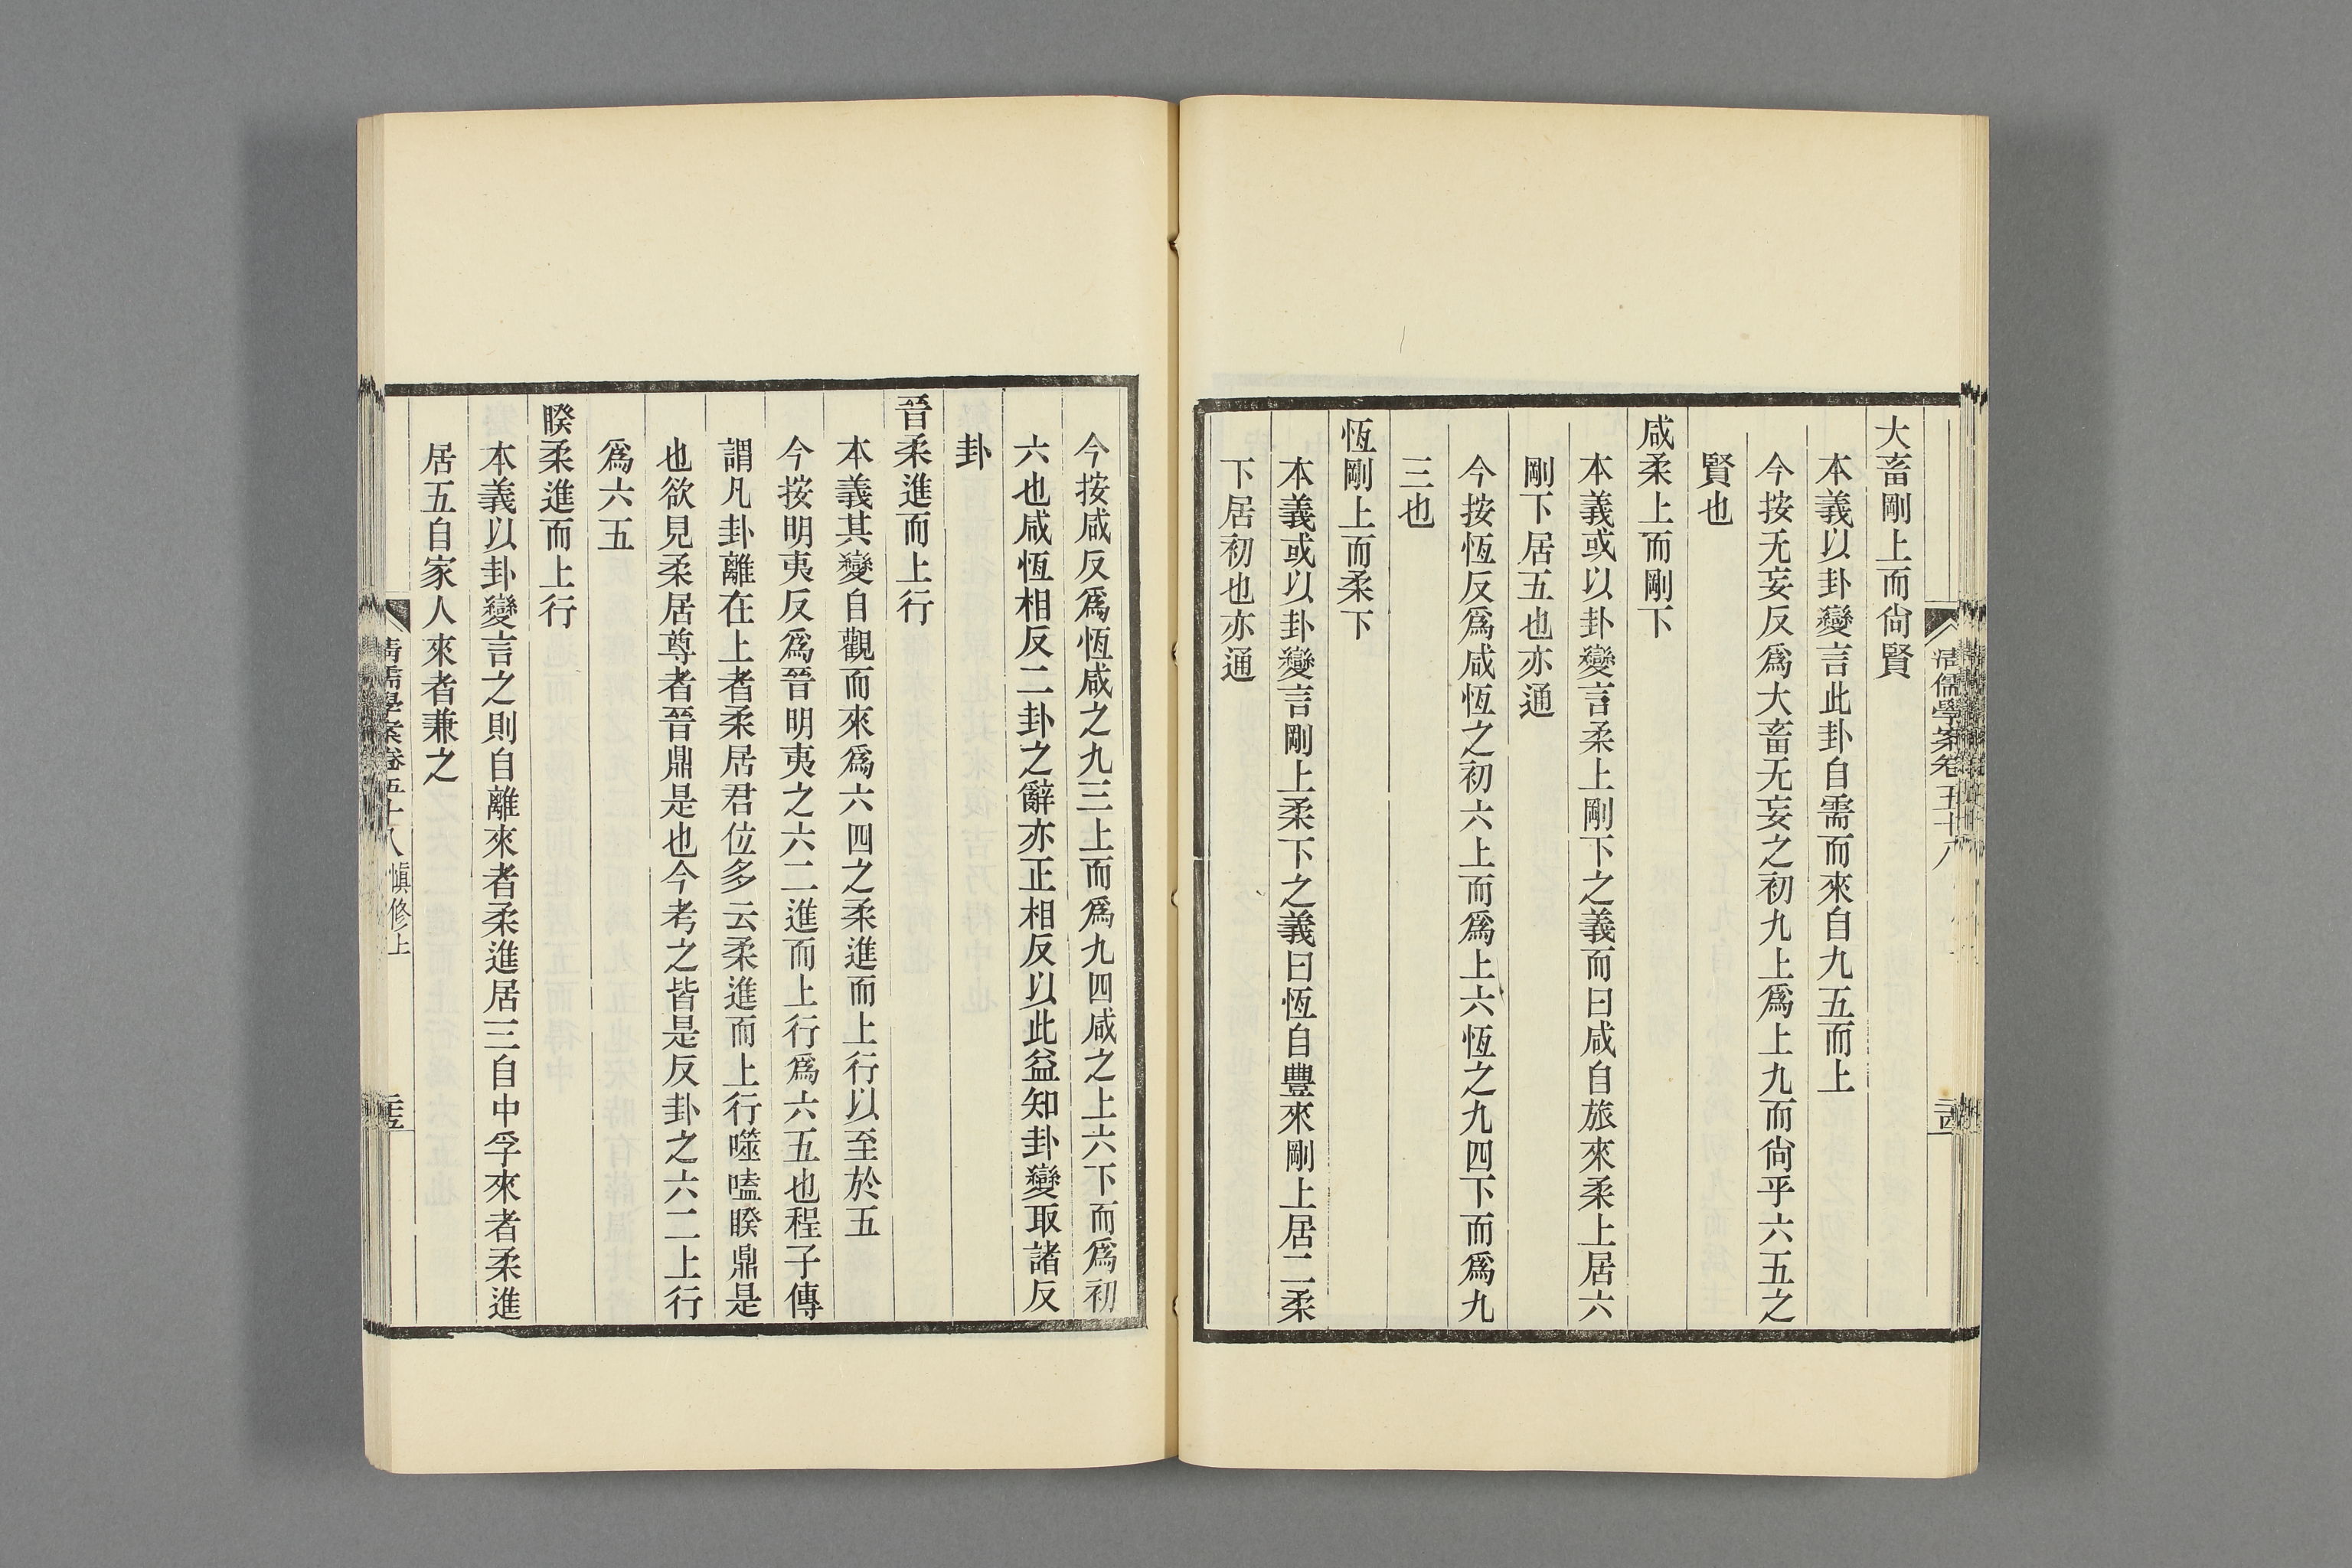 大畜剛上而尙賢
本義以卦變言此卦自需而來自九五而上
今按无妄反爲大畜无妄之初九上爲上九而尙乎六五之
賢也
咸柔上而剛下
本義或以卦變言柔上剛下之義而曰咸自旅來柔上居六
剛下居五也亦通
今按恆反爲咸恆之初六上而爲上六恆之九四下而爲九
三也
恆剛上而柔下
本義或以卦變言剛上柔下之義曰恆自豐來剛上居二柔
下居初也亦通
今按咸反爲恆咸之九三上而爲九四咸之上六下而爲初
六也咸恆相反二卦之辭亦正相反以此益知卦變取諸反
卦
晉柔進而上行
本義其變自觀而來爲六四之柔進而上行以至於五
今按明夷反爲晉明夷之六二進而上行爲六五也程子傳
謂凡卦離在上者柔居君位多云柔進而上行噬嗑睽鼎是
也欲見柔居尊者晉鼎是也今考之皆是反卦之六二上行
爲六五
睽柔進而上行
本義以卦變言之則自離來者柔進居三自中孚來者柔進
居五自家人來者兼之
淸儒學案卷五十八 愼修上